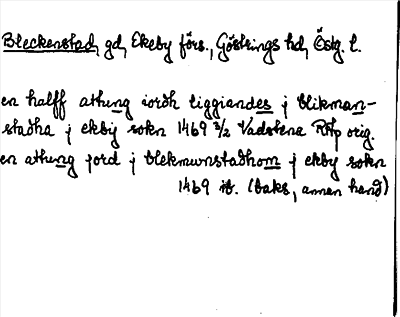 Bleckenstad, gd, Ekeby förs., Göstrings hd, Östg. l.
en halff attung iordh liggiandes j blikman-
stadha j ekby sokn 1469 3/2 Vadstena RPp orig.
en athung jord j blekmunstadhom j ekby sokn
1469 ib. (baks, annan hand)